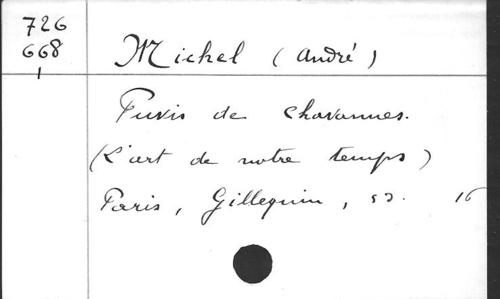 726
668
1
Michel (André)
Puvis de Chavannes.
(L'art de notre temps)
Paris, Gillequin, sd. 16